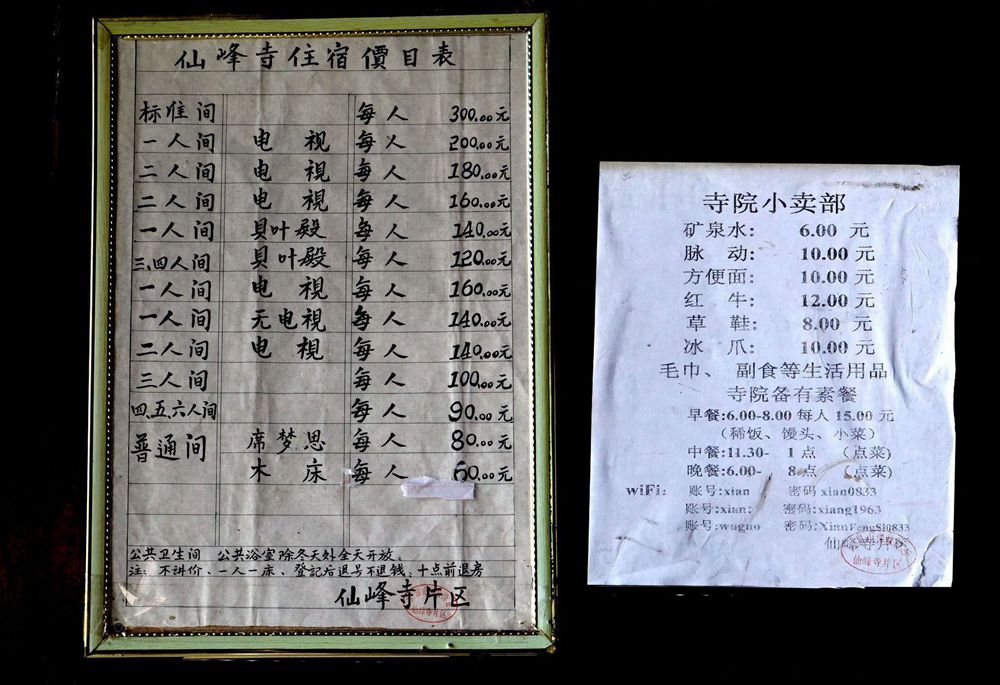 仙峰寺住宿價目表
标准间 每人 300.00元
一人间 电視 每人 200.00元
二人间 电視 每人 180.00元
二人间 电視 每人 160.00元
一人间 貝叶殿 每人 140.00元
三、四人间 貝叶殿 每人 120.00元
一人间 电視 每人 160.00元
一人间 无电視 每人 140.00元
二人间 电視 每人 140.00元
三人间 每人 100.00元
四、五、六人间 每人 90.00元
普通间 席梦思 每人 80.00元
木床 每人 60.00元
公共卫生间 公共浴室除冬天外全天开放。
注：不讲价、一人一床、登記后退号不退钱、十点前退房
仙峰寺片区
仙峰寺片区
寺院小卖部
矿泉水: 6.00 元
脉 动: 10.00 元
方便面: 10.00 元
红 牛: 12.00 元
草 鞋: 8.00 元
冰 爪: 10.00 元
毛巾、 副食等生活用品
寺院备有素餐
早餐:6.00-8.00 每人 15.00 元
（稀饭、馒头、小菜）
中餐:11.30- 1 点 （点菜）
晚餐:6.00- 8 点 （点菜）
wiFi: 账号:xian 密码 xian0833
账号:xian: 密码:xiang1963
账号:waguo 密码:XianFengSi0833
仙峰寺片区
仙峰寺片区